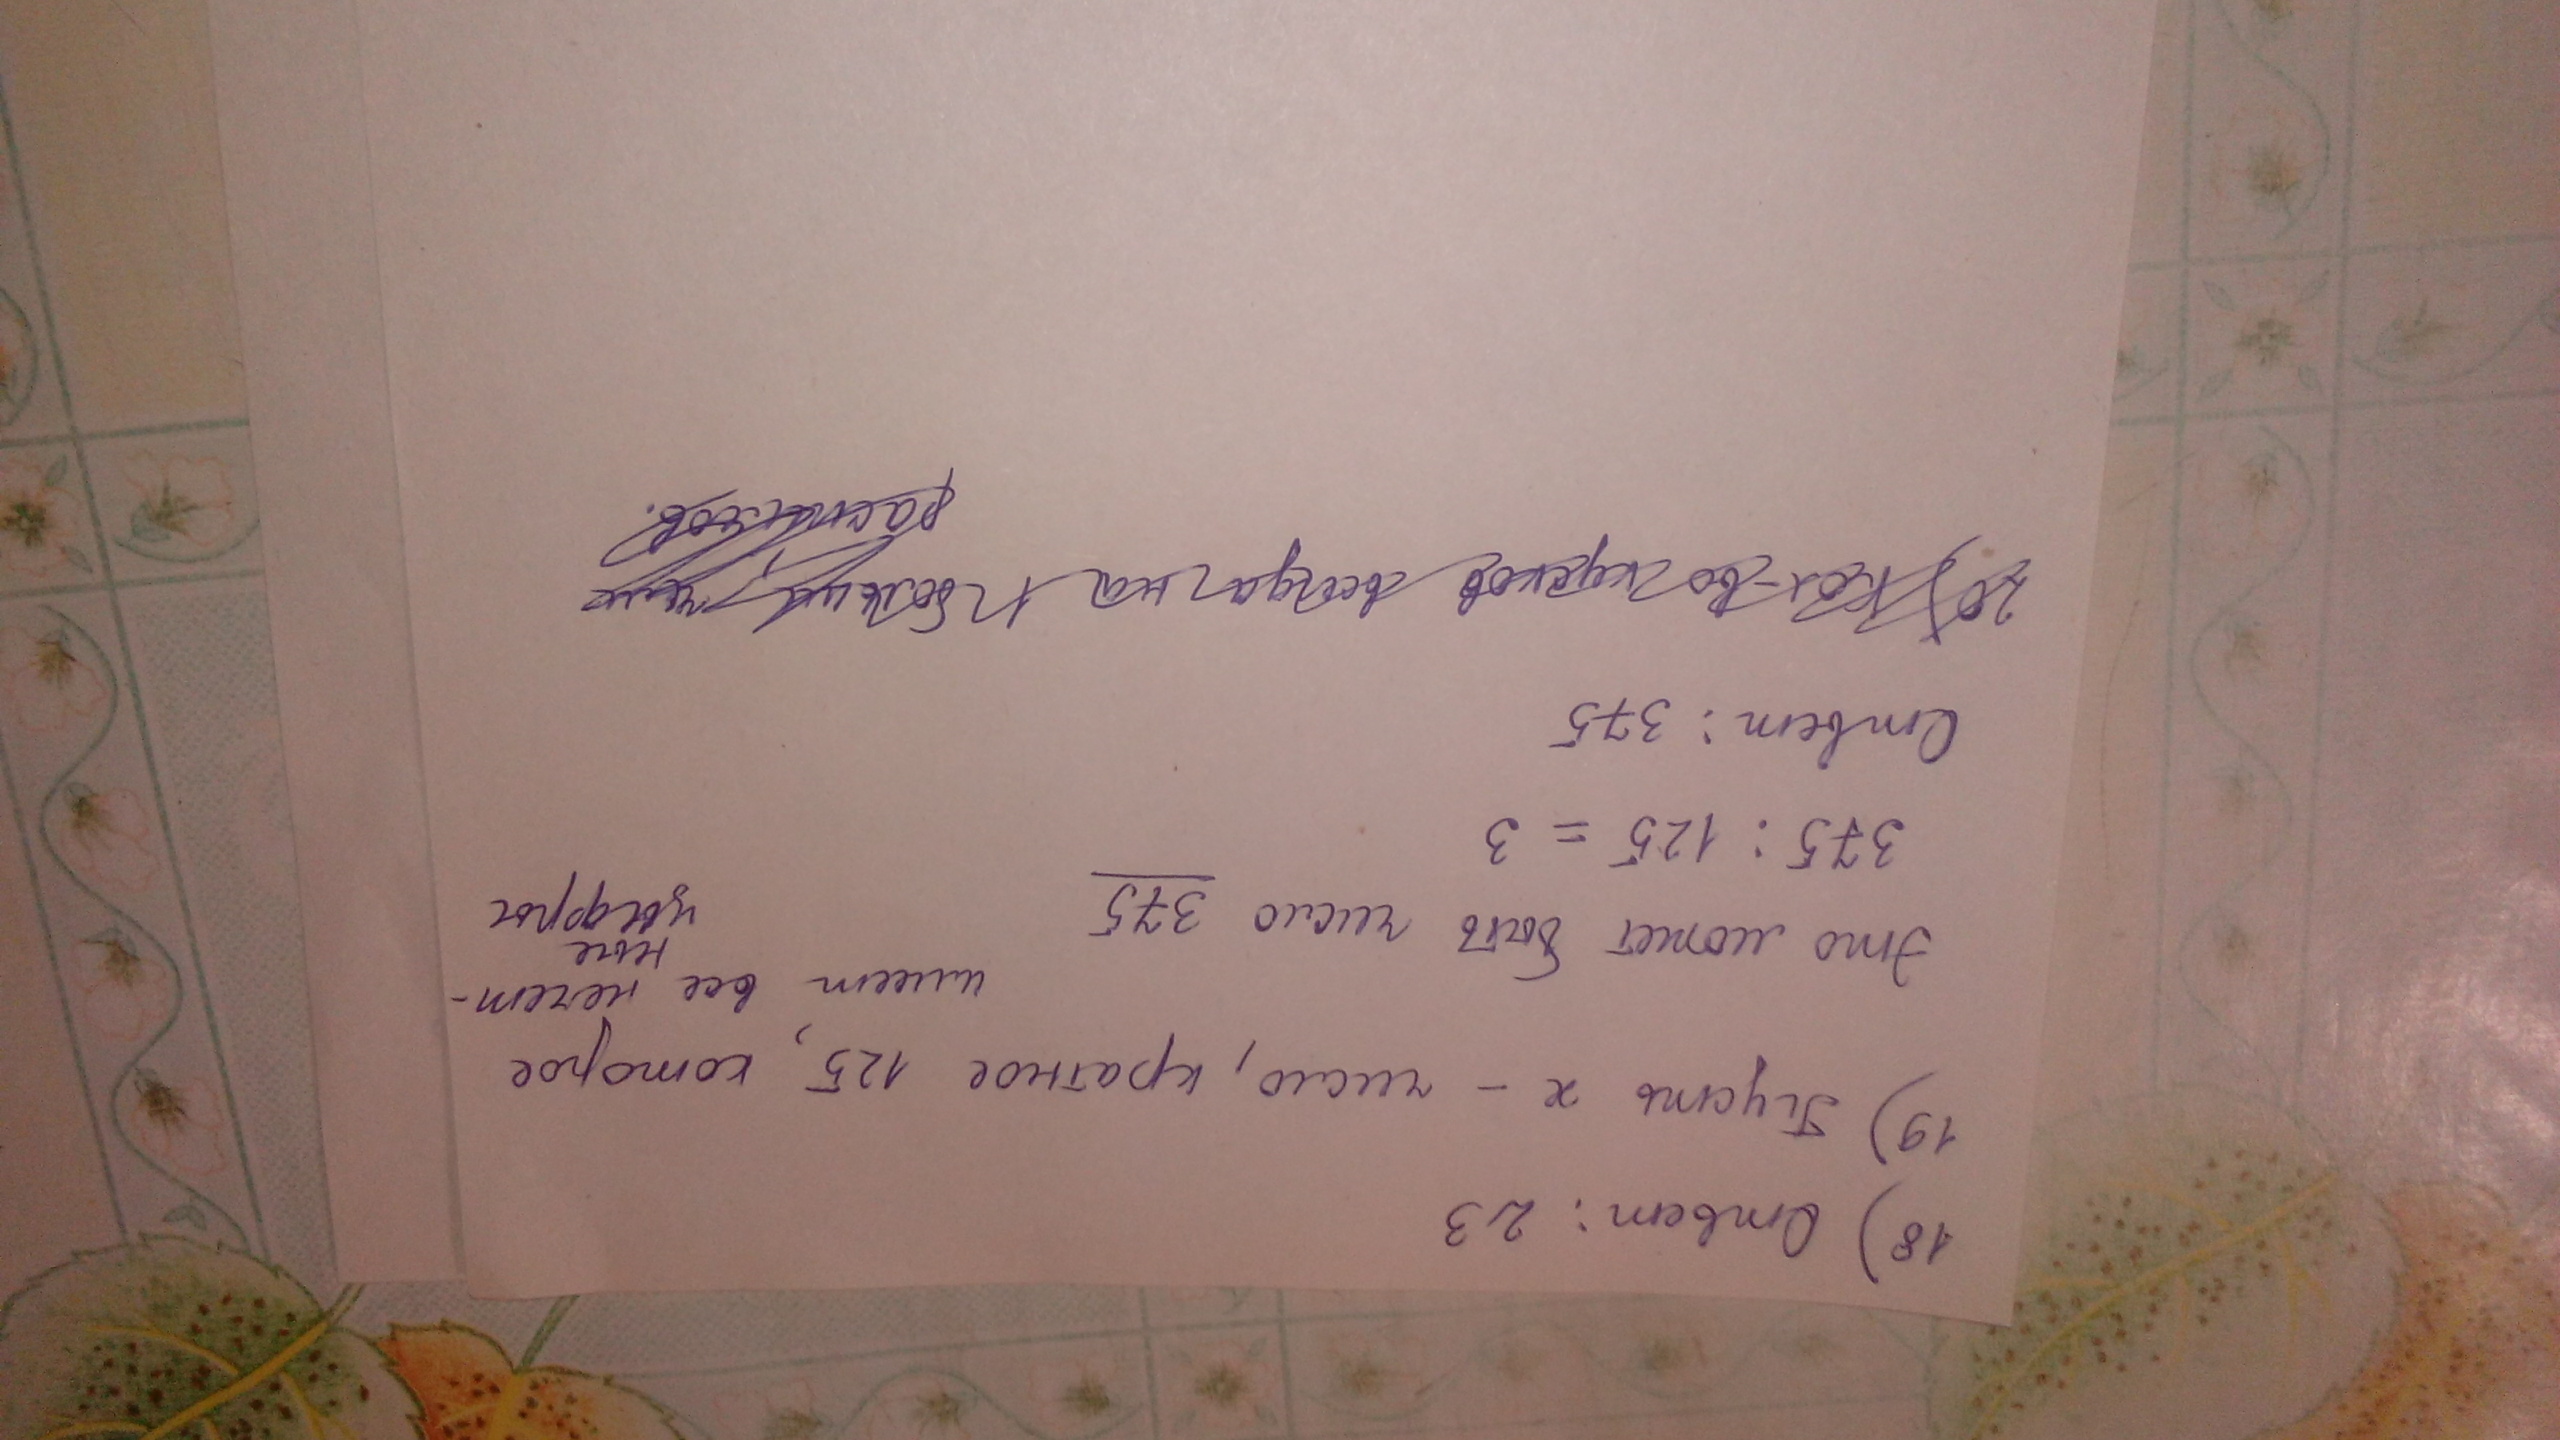 18) Ответ: 23
19) Пусть x - число, кратное 125, которое
имеет все нечет-
ные
цыфры
Это может быть число 375
375 : 125 = 3
Ответ: 375
20) Кол-во кусков всегда на 1 больше, чем
распилов.